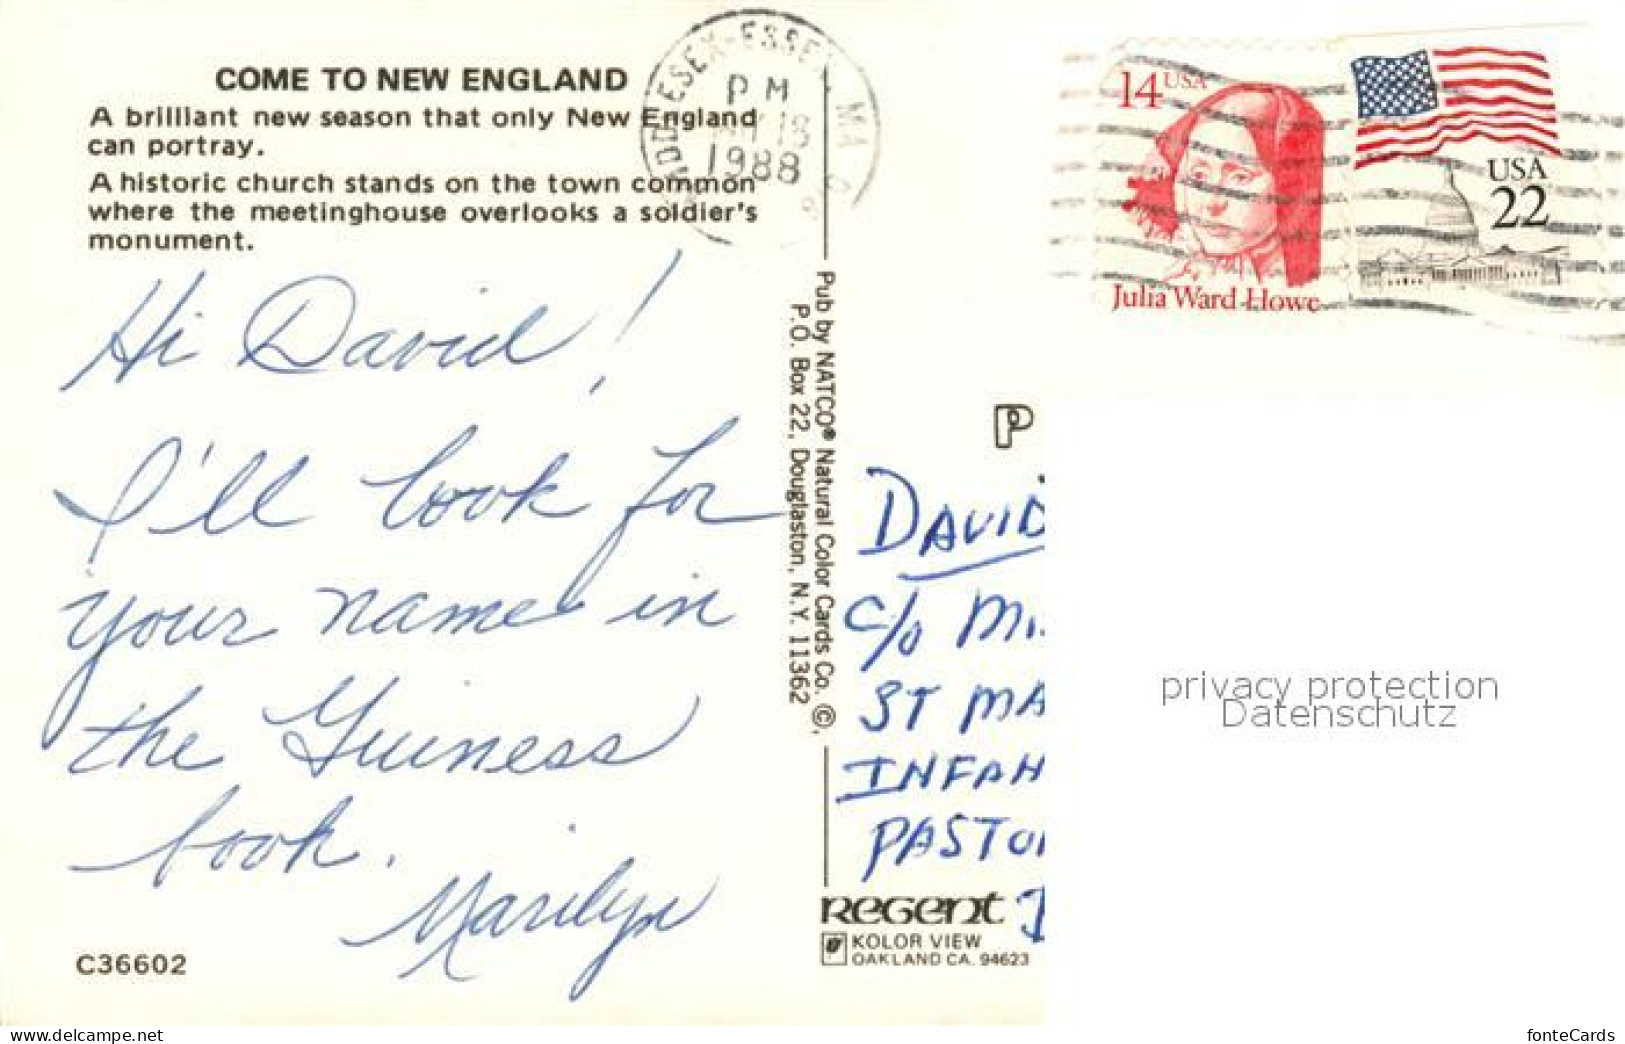 COME TO NEW ENGLAND
A brilliant new season that only New England
can portray.
A historic church stands on the town common
where the meetinghouse overlooks a soldier's
monument.
Hi David!
I'll look for
your name in
the Guiness
book.
Marilyn
C36602
MIDDLESEX-ESSEX MA
PM
18
1988
Pub by NATCO® Natural Color Cards Co. ©,
P.O. Box 22, Douglaston, N.Y. 11362
14 USA
Julia Ward Howe
USA
22
P
DAVID
C/O M
ST MA
INFAN
PASTO
REGENT
KOLOR VIEW
OAKLAND CA. 94623
privacy protection
Datenschutz
www.ak-ansichtskarten.de
fonteCards